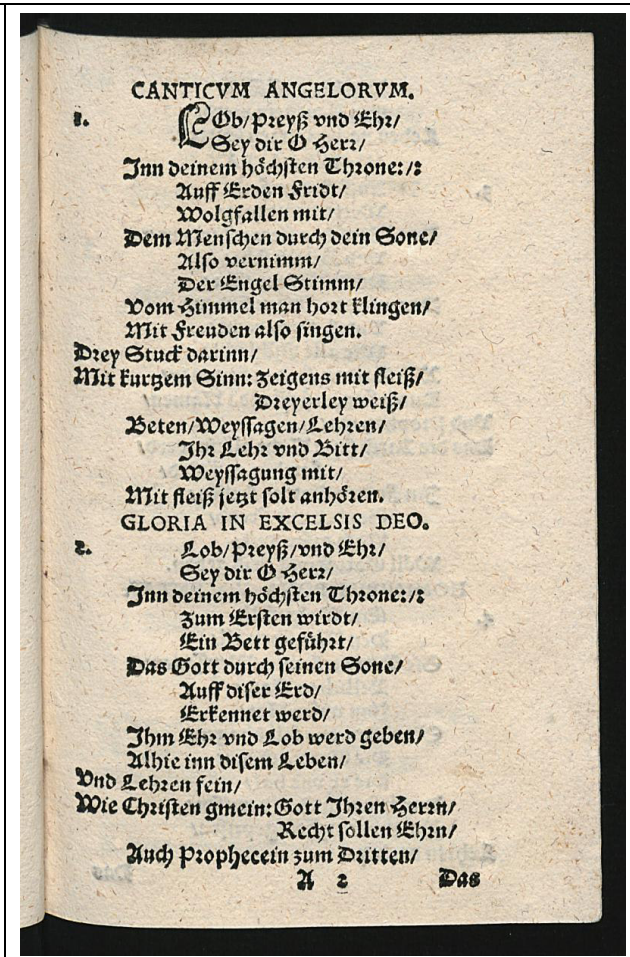 CANTICVM ANGELORVM.
1. LOb/Preyß vnd Ehr/
Sey dir O Herr/
Inn deinem höchsten Throne:/:
Auff Erden Fridt/
Wolgfallen mit/
Dem Menschen durch dein Sone/
Also vernimm/
Der Engel Stimm/
Vom Himmel man hort klingen/
Mit Freuden also singen.
Drey Stuck darinn/
Mit kurtzem Sinn: Zeigens mit fleiß/
Dreyerley weiß/
Beten/Weyssagen/Lehren/
Ihr Lehr vnd Bitt/
Weyssagung mit/
Mit fleiß jetzt solt anhören.
GLORIA IN EXCELSIS DEO.
2. Lob/Preyß/vnd Ehr/
Sey dir O Herr/
Inn deinem höchsten Throne:/:
Zum Ersten wirdt/
Ein Bett geführt/
Das Gott durch seinen Sone/
Auff diser Erd/
Erkennet werd/
Ihm Ehr vnd Lob werd geben/
Alhie inn disem Leben/
Vnd Lehren fein/
Wie Christen gmein: Gott Ihren Herrn/
Recht sollen Ehrn/
Auch Prophecein zum Dritten/
A 2 Das